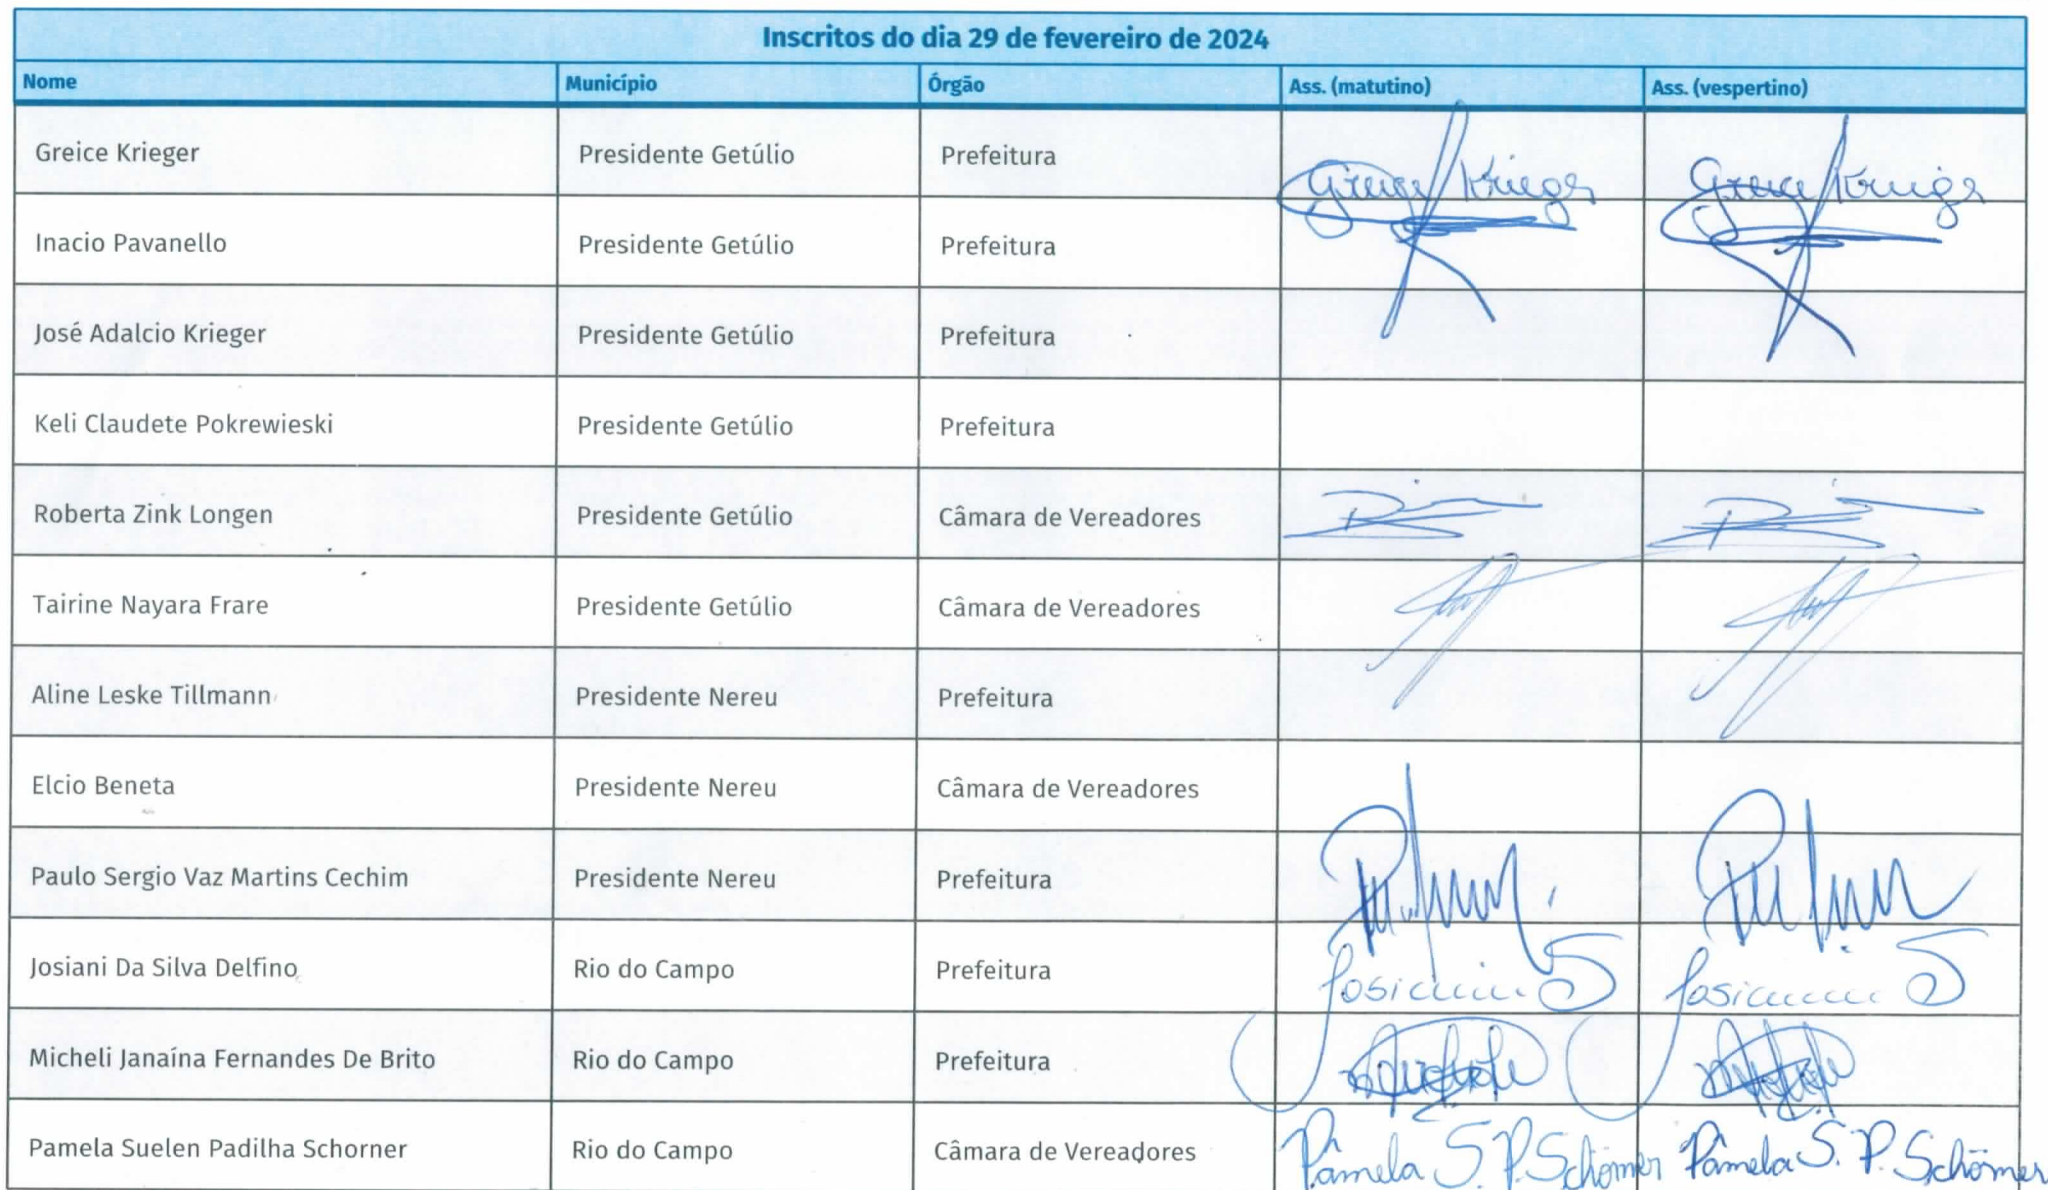 Inscritos do dia 29 de fevereiro de 2024
Nome Município Órgão Ass. (matutino) Ass. (vespertino)
Greice Krieger Presidente Getúlio Prefeitura Greice Krieger Greice Krieger
Inacio Pavanello Presidente Getúlio Prefeitura
José Adalcio Krieger Presidente Getúlio Prefeitura
Keli Claudete Pokrewieski Presidente Getúlio Prefeitura
Roberta Zink Longen Presidente Getúlio Câmara de Vereadores
Tairine Nayara Frare Presidente Getúlio Câmara de Vereadores
Aline Leske Tillmann Presidente Nereu Prefeitura
Elcio Beneta Presidente Nereu Câmara de Vereadores
Paulo Sergio Vaz Martins Cechim Presidente Nereu Prefeitura
Josiani Da Silva Delfino Rio do Campo Prefeitura
Micheli Janaína Fernandes De Brito Rio do Campo Prefeitura
Pamela Suelen Padilha Schorner Rio do Campo Câmara de Vereadores Pâmela S. P. Schörner Pâmela S. P. Schörner